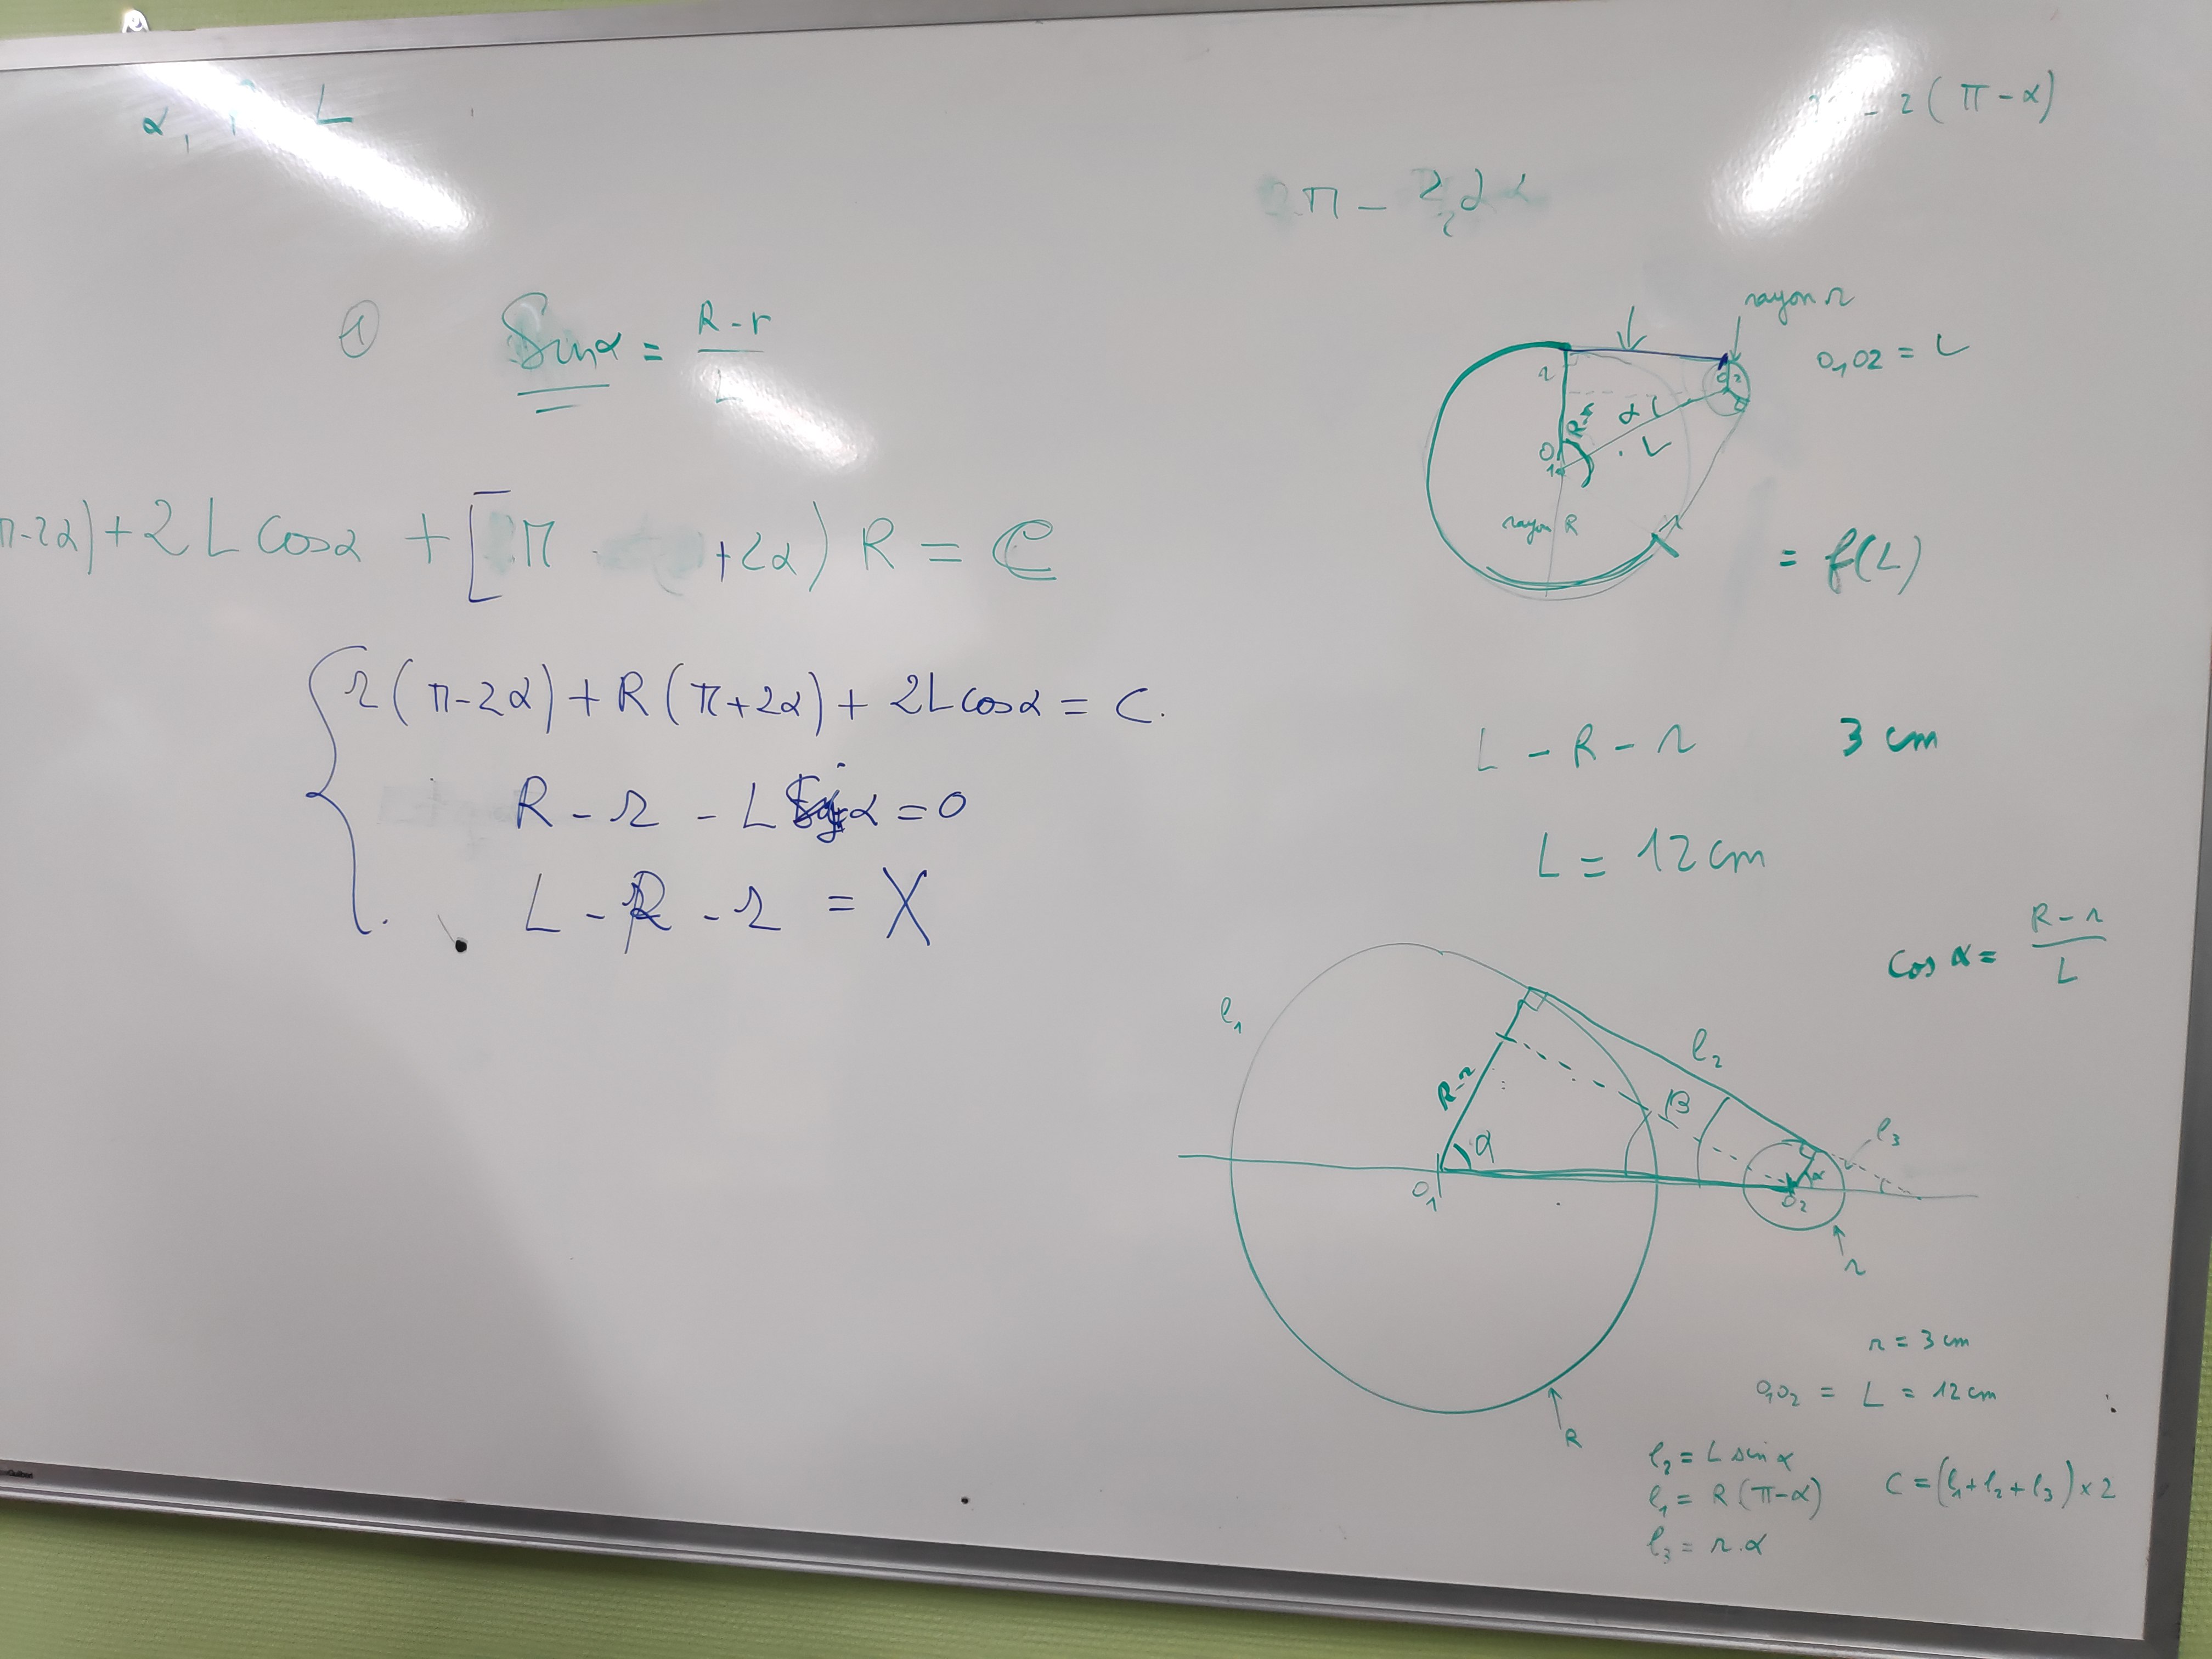 α, L
2(π-α)
π - 2α
① Sin α = R-r / L
rayon r
O₁O2 = L
r
R-r
α
L
O1
O2
rayon R
π-2α) + 2L Cosα + [π +2α) R = C
= f(L)
r(π-2α) + R(π+2α) + 2L cosα = C.
R - r - L Sin α = 0
L - R - r = X
L - R - r 3 cm
L = 12 cm
cos α = R-r / L
l₁
l₂
R-r
β
α
l₃
O₁
α
O₂
r
R
r = 3 cm
O₁O₂ = L = 12 cm
l₂ = L sin α
l₁ = R(π-α) C = (l₁+l₂+l₃)×2
l₃ = r.α